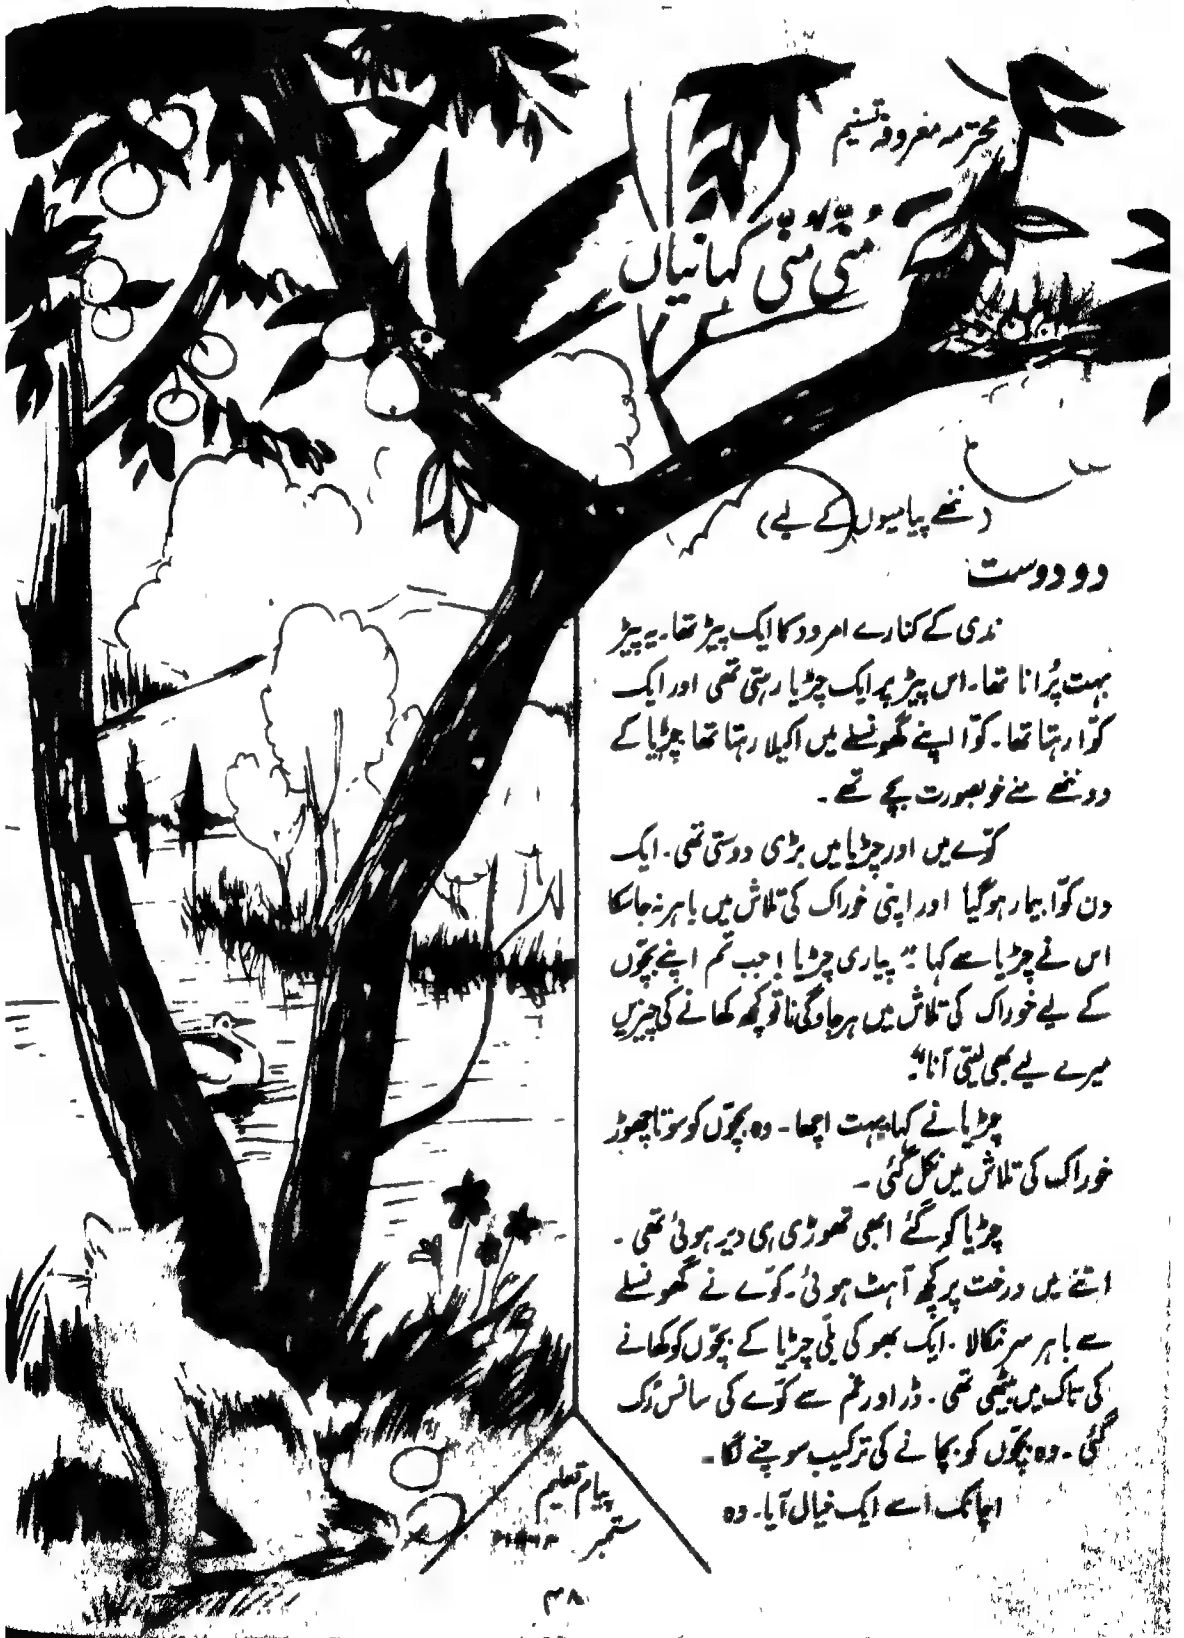 محترمہ معروفہ تسنیم
منی منی کہانیاں
(ننھے پیامیوں کے لیے)
دو دوست
ندی کے کنارے امرود کا ایک پیڑ تھا۔ یہ پیڑ
بہت پُرانا تھا۔ اس پیڑ پر ایک چڑیا رہتی تھی اور ایک
کوّا رہتا تھا۔ کوّا اپنے گھونسلے میں اکیلا رہتا تھا چڑیا کے
دو ننھے منے خوبصورت بچے تھے۔
کوّے میں اور چڑیا میں بڑی دوستی تھی۔ ایک
دن کوّا بیمار ہو گیا اور اپنی خوراک کی تلاش میں باہر نہ جا سکا
اس نے چڑیا سے کہا "پیاری چڑیا! جب تم اپنے بچّوں
کے لیے خوراک کی تلاش میں ہر جاوگی نا تو کچھ کھانے کی چیزیں
میرے لیے بھی لیتی آنا"۔
چڑیا نے کہا بہت اچھا۔ وہ بچّوں کو سوتا چھوڑ
خوراک کی تلاش میں نکل گئی۔
چڑیا کو گئے ابھی تھوڑی ہی دیر ہوئی تھی۔
اتنے میں درخت پر کچھ آہٹ ہوئی۔ کوّے نے گھونسلے
سے باہر سر نکالا۔ ایک بھوکی بلّی چڑیا کے بچّوں کو کھانے
کی تاک میں بیٹھی تھی۔ ڈر اور غم سے کوّے کی سانس رُک
گئی۔ وہ بچّوں کو بچانے کی ترکیب سوچنے لگا۔
اچانک اسے ایک خیال آیا۔ وہ
پیام تعلیم
ستمبر
۳۸